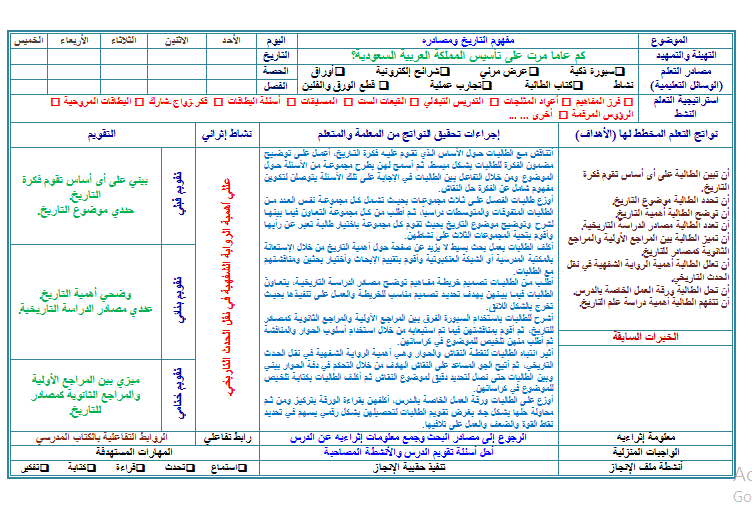 الموضوع
مفهوم التاريخ ومصادره
اليوم
الأحد
الاثنين
الثلاثاء
الأربعاء
الخميس
التهيئة والتمهيد
كم عاما مرت على تأسيس المملكة العربية السعودية؟
التاريخ
مصادر التعلم
(الوسائل التعليمية)
سبورة ذكية عرض مرئي شرائح إلكترونية أوراق
نشاط كتاب الطالبة تجارب عملية قطع الورق والفلين
الحصة
الفصل
استراتيجية التعلم
النشط
فرز المفاهيم أعواد المثلجات التدريس التبادلي القبعات الست المسابقات أسئلة البطاقات فكر.زواج.شارك البطاقات المروحية
الرؤوس المرقمة أخرى ... ...
نواتج التعلم المخطط لها (الأهداف)
إجراءات تحقيق النواتج من المعلمة والمتعلم
نشاط إثرائي
التقويم
أن تبين الطالبة على أي أساس تقوم فكرة
التاريخ.
أن تحدد الطالبة موضوع التاريخ.
أن توضح الطالبة أهمية التاريخ.
أن تعدد الطالبة مصادر الدراسة التاريخية.
أن تميز الطالبة بين المراجع الأولية والمراجع
الثانوية كمصادر للتاريخ.
أن تعلل الطالبة أهمية الرواية الشفهية في نقل
الحدث التاريخي.
أن تحل الطالبة ورقة العمل الخاصة بالدرس.
أن تتفهم الطالبة أهمية دراسة علم التاريخ.
الخبرات السابقة
أتناقش مع الطالبات حول الأساس الذي تقوم عليه فكرة التاريخ، أعمل على توضيح
مضمون الفكرة للطالبات بشكل مبسط، ثم أسمح لهن بطرح مجموعة من الأسئلة حول
الموضوع ومن خلال التفاعل بين الطالبات في الإجابة على تلك الأسئلة يتوصلن لتكوين
مفهوم شامل عن الفكرة حل النقاش.
أوزع طالبات الفصل على ثلاث مجموعات بحيث تشمل كل مجموعة نفس العدد من
الطالبات المتفوقات والمتوسطات دراسيا، ثم أطلب من كل مجموعة التعاون فيما بينها
لشرح وتوضيح موضوع التاريخ بحيث تقوم كل مجموعة باختيار طالبة تعبر عن رأيها
وأقوم بتحية المجموعات الثلاث على نشاطهن.
أكلف الطالبات بعمل بحث بسيط لا يزيد عن صفحة حول أهمية التاريخ من خلال الاستعانة
بالمكتبة المدرسية أو الشبكة العنكبوتية وأقوم بتقييم الأبحاث وأختار بحثين ومناقشتهم
مع الطالبات.
أطلب من الطالبات تصميم خريطة مفاهيم توضح مصادر الدراسة التاريخية، يتعاون
الطالبات فيما بينهن بهدف تحديد تصميم مناسب للخريطة والعمل على تنفيذها بحيث
تخرج بالشكل اللائق.
أشرح للطالبات باستخدام السبورة الفرق بين المراجع الأولية والمراجع الثانوية كمصادر
للتاريخ، ثم أقوم بمناقشتهن فيما تم استيعابه من خلال استخدام أسلوب الحوار والمناقشة
ثم أطلب منهن تلخيص للموضوع في كراساتهن.
أثير انتباه الطالبات لنقطة النقاش والحوار وهي أهمية الرواية الشفهية في نقل الحدث
التاريخي، ثم أتيح الجو المساعد على النقاش الهادف من خلال التحكم في دفة الحوار بيني
وبين الطالبات حتى نصل لتحديد دقيق لموضوع النقاش ثم أكلف الطالبات بكتابة تلخيص
للموضوع في كراساتهن.
أوزع على الطالبات ورقة العمل الخاصة بالدرس، أكلفهن بقراءة الورقة بتركيز ومن ثم
محاولة حلها بشكل جاد بغرض تقويم الطالبات لتحصيلهن بشكل رقمي يسهم في تحديد
نقاط القوة والضعف والعمل على تلافيها.
عللي أهمية الرواية الشفهية في نقل الحدث التاريخي.
تقويم قبلي
بيني على أي أساس تقوم فكرة
التاريخ.
حددي موضوع التاريخ.
تقويم بنائي
وضحي أهمية التاريخ.
عددي مصادر الدراسة التاريخية.
تقويم ختامي
ميزي بين المراجع الأولية
والمراجع الثانوية كمصادر
للتاريخ.
معلومة إثرائيه
الرجوع إلى مصادر البحث وجمع معلومات إثرائيه عن الدرس
رابط تفاعلي
الروابط التفاعلية بالكتاب المدرسي
الواجبات المنزلية
أحل أسئلة تقويم الدرس والأنشطة المصاحبة
المهارات المستهدفة
أنشطة ملف الإنجاز
تنفيذ حقيبة الإنجاز
استماع تحدث قراءة كتابة تفكير